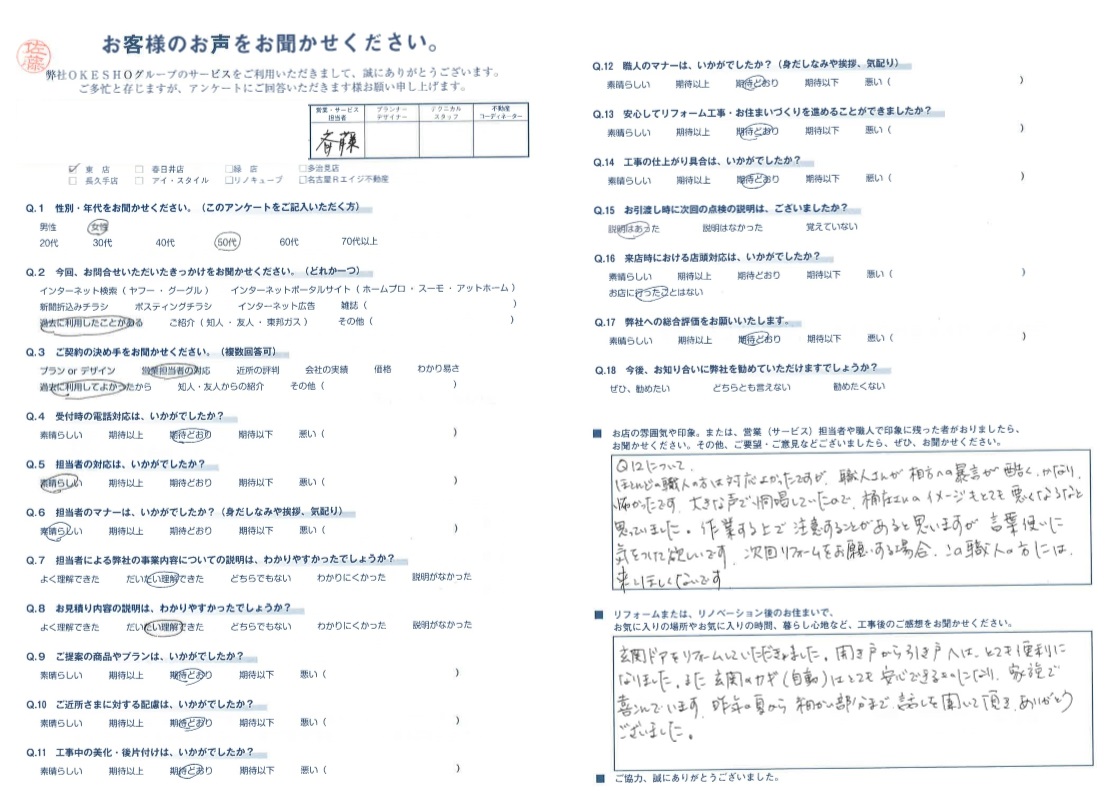 佐藤
お客様のお声をお聞かせください。
弊社OKESHOグループのサービスをご利用いただきまして、誠にありがとうございます。
ご多忙と存じますが、アンケートにご回答いただきます様お願い申し上げます。
営業・サービス担当者 プランナーデザイナー テクニカルスタッフ 不動産コーディネーター
斉藤
東 店 春日井店 緑 店 多治見店
長久手店 アイ・スタイル リノキューブ 名古屋Rエイジ不動産
Q.1 性別・年代をお聞かせください。(このアンケートをご記入いただく方)
男性 女性
20代 30代 40代 50代 60代 70代以上
Q.2 今回、お問合せいただいたきっかけをお聞かせください。(どれか一つ)
インターネット検索(ヤフー・グーグル) インターネットポータルサイト(ホームプロ・スーモ・アットホーム)
新聞折込みチラシ ポスティングチラシ インターネット広告 雑誌( )
過去に利用したことがある ご紹介(知人・友人・東邦ガス) その他( )
Q.3 ご契約の決め手をお聞かせください。(複数回答可)
プラン or デザイン 営業担当者の対応 近所の評判 会社の実績 価格 わかり易さ
過去に利用してよかったから 知人・友人からの紹介 その他( )
Q.4 受付時の電話対応は、いかがでしたか?
素晴らしい 期待以上 期待どおり 期待以下 悪い( )
Q.5 担当者の対応は、いかがでしたか?
素晴らしい 期待以上 期待どおり 期待以下 悪い( )
Q.6 担当者のマナーは、いかがでしたか?(身だしなみや挨拶、気配り)
素晴らしい 期待以上 期待どおり 期待以下 悪い( )
Q.7 担当者による弊社の事業内容についての説明は、わかりやすかったでしょうか?
よく理解できた だいたい理解できた どちらでもない わかりにくかった 説明がなかった
Q.8 お見積り内容の説明は、わかりやすかったでしょうか?
よく理解できた だいたい理解できた どちらでもない わかりにくかった 説明がなかった
Q.9 ご提案の商品やプランは、いかがでしたか?
素晴らしい 期待以上 期待どおり 期待以下 悪い( )
Q.10 ご近所さまに対する配慮は、いかがでしたか?
素晴らしい 期待以上 期待どおり 期待以下 悪い( )
Q.11 工事中の美化・後片付けは、いかがでしたか?
素晴らしい 期待以上 期待どおり 期待以下 悪い( )
Q.12 職人のマナーは、いかがでしたか?(身だしなみや挨拶、気配り)
素晴らしい 期待以上 期待どおり 期待以下 悪い( )
Q.13 安心してリフォーム工事・お住まいづくりを進めることができましたか?
素晴らしい 期待以上 期待どおり 期待以下 悪い( )
Q.14 工事の仕上がり具合は、いかがでしたか?
素晴らしい 期待以上 期待どおり 期待以下 悪い( )
Q.15 お引渡し時に次回の点検の説明は、ございましたか?
説明はあった 説明はなかった 覚えていない
Q.16 来店時における店頭対応は、いかがでしたか?
素晴らしい 期待以上 期待どおり 期待以下 悪い( )
お店に行ったことはない
Q.17 弊社への総合評価をお願いいたします。
素晴らしい 期待以上 期待どおり 期待以下 悪い( )
Q.18 今後、お知り合いに弊社を勧めていただけますでしょうか?
ぜひ、勧めたい どちらとも言えない 勧めたくない
■ お店の雰囲気や印象。または、営業(サービス)担当者や職人で印象に残った者がおりましたら、
お聞かせください。その他、ご要望・ご意見などございましたら、ぜひ、お聞かせください。
Q12について.
ほとんどの職人の方は対応よかったですが、職人さんが相方への暴言が酷く、かなり
怖かったです。大きな声で恫喝していたので、桶庄さんのイメージもとても悪くなるなと
思っていました。作業する上で注意することがあると思いますが言葉使いに
気をつけて欲しいです。次回リフォームをお願いする場合、この職人の方には、
来てほしくないです
■ リフォームまたは、リノベーション後のお住まいで、
お気に入りの場所やお気に入りの時間、暮らし心地など、工事後のご感想をお聞かせください。
玄関ドアをリフォームしていただきました。開き戸から引き戸へは、とても便利に
なりました。また玄関のカギ(自動)はとても安心できるものになり、家族で
喜んでいます。昨年の夏から細かい部分まで、話しを聞いて頂き、ありがとう
ございました。
■ ご協力、誠にありがとうございました。